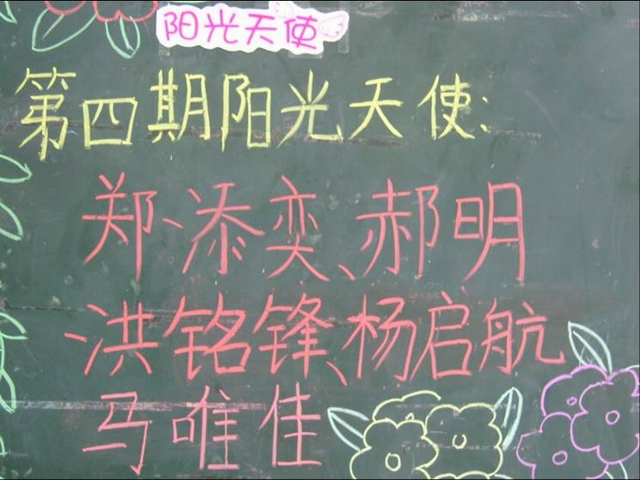 阳光天使
第四期阳光天使:
郑添奕、郝明
洪铭锋、杨启航
马唯佳